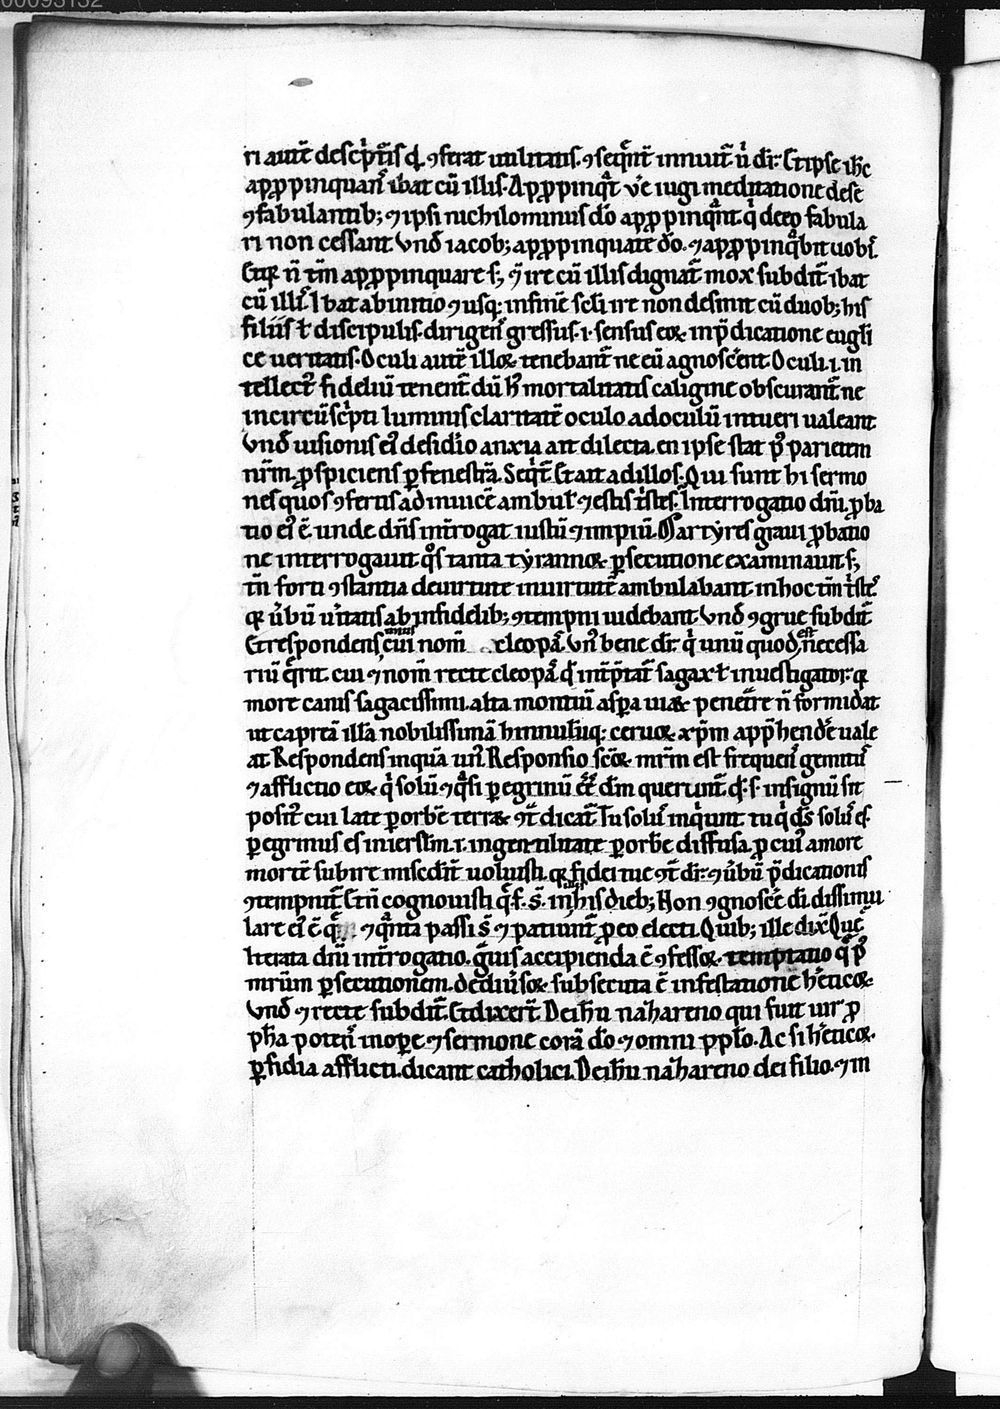 00095132
ri autē desc̄ptis qͥ ꝯferat utilitatis. ꝯseqͣnt̄ innuit̄ ū dr̄: Et ipse ih̄c
aꝓpinquans ibat cū illis. Aꝓpinqͣt v̄e iugi meditatione dese
ꝯfabulantib; ⁊ ipsi nichilominus dō aꝓpinqͣnt qͥ de eo fabula
ri non cessant Vnđ iacob; aꝓpinquate đo. ⁊ aꝓpinqͣbit uobis.
Et qꝛ n̄ tm̄ aꝓpinquare s; ⁊ ire cū illis dignat̄ mox subdit̄ ibat
cū illis. Ibat ab initio ⁊ usq; in finē sc̄li ire non desinit cū duob; his
filiis ł discipulis. dirigens gressus .i. sensus eoꝝ in p̄dicatione eugl̄i
ce ueritatis. Oculi autē illoꝝ tenebant̄ ne eū agnoscerent. Oculi .i. in
tellectꝰ fideliū tenent̄ dū h mortalitatis caligine obscurant̄ ne
incircūsc̄pti luminis claritatē oculo ad oculū intueri ualeant
Vnđ uisionis eiꝰ desid̓io anxia ait dilecta. en ipse stat pꝰ parietem
nr̄m. ꝓspiciens ꝑ fenestrā. Seqͥt̄. Et ait ad illos. Qui sunt hi sermo
nes quos ꝯfertis ad inuicē ambul̄ ⁊ estis tͥstes. Interrogatio dn̄i. ꝓba
tio eiꝰ ē. unde dn̄s int̄rogat iustū ⁊ impiū. Martyres graui ꝓbatio
ne interrogauit qͦs tanta tyrannoꝝ ꝑsecutione examinauit s;
tn̄ forti ꝯstantia de uirtute in uirtutē ambulabant. in hoc tm̄ tͥstes
qꝛ u̓bū u̓itatis ab infidelib; ꝯtempni uidebant. Vnđ ꝯgrue subdit̄
Et respondens unus cui nom̄ cleopas. Vn̄ bene dr̄ qͥ unū quod est necessa
riū qͥrit. cui ⁊ nom̄ recte cleopas qͥ int̓p̄tat̄ sagax ł inuestigator. qͥ
more canis sagacissimi. alta montiū aspa uiaꝝ penetre n̄ formidat
ut capreā illā nobilissimā hinnulūq; ceruoꝝ xp̄m app̄hend̓e uale
at Respondens inquā unꝰ. Responsio sc̄oꝝ mr̄m est frequens gemitus
⁊ afflictio eoꝝ qͥ solū ⁊ qͣsi ꝑegrinū dm̄ querunt. qͥ s. insignū sit
positꝰ cui late ꝑ orbē terraꝝ ꝯt̓dicat̄. Tu solus inquiunt tu qͥ ds̄ solus es.
ꝑegrinus es in ierl̄m .i. in gentilitate ꝑ orbē diffusa. ꝓ cuiꝰ amore
mortē subire misc̓dit̄ uoluisti. qꝛ fidei tue ꝯt̓ dr̄. ⁊ u̓bū p̄dicationis
ꝯtempnit̄. Et n̄ cognouisti qͥ f. s̄. in illis his dieb; Non ꝯgnosc̓e đi. dissimu
lare eiꝰ ē qͣ ⁊ qͣnta passi s̄ ⁊ patiunt̄ ꝓ eo electi. Quib; ille dix̄ Que
Iterata dn̄i int̓rogatio. gͣuis accipienda ē ꝯfessoꝝ temptatio qͥ pꝰ
mr̄um ꝑsecutionem. de diu̓soꝝ subsecuta ē infestatione h̓eticoꝝ
Vnđ ⁊ recte subdit̄. Et dixert̄. De ih̄u naȝareno qui fuit uir ꝓ
ph̄a potens in oꝑe ⁊ sermone corā dō ⁊ omni ppl̄o. Ac si h̓eticoꝝ
ꝑfidia afflicti. dicant catholici. De ih̄u naȝareno dei filio. ⁊ in